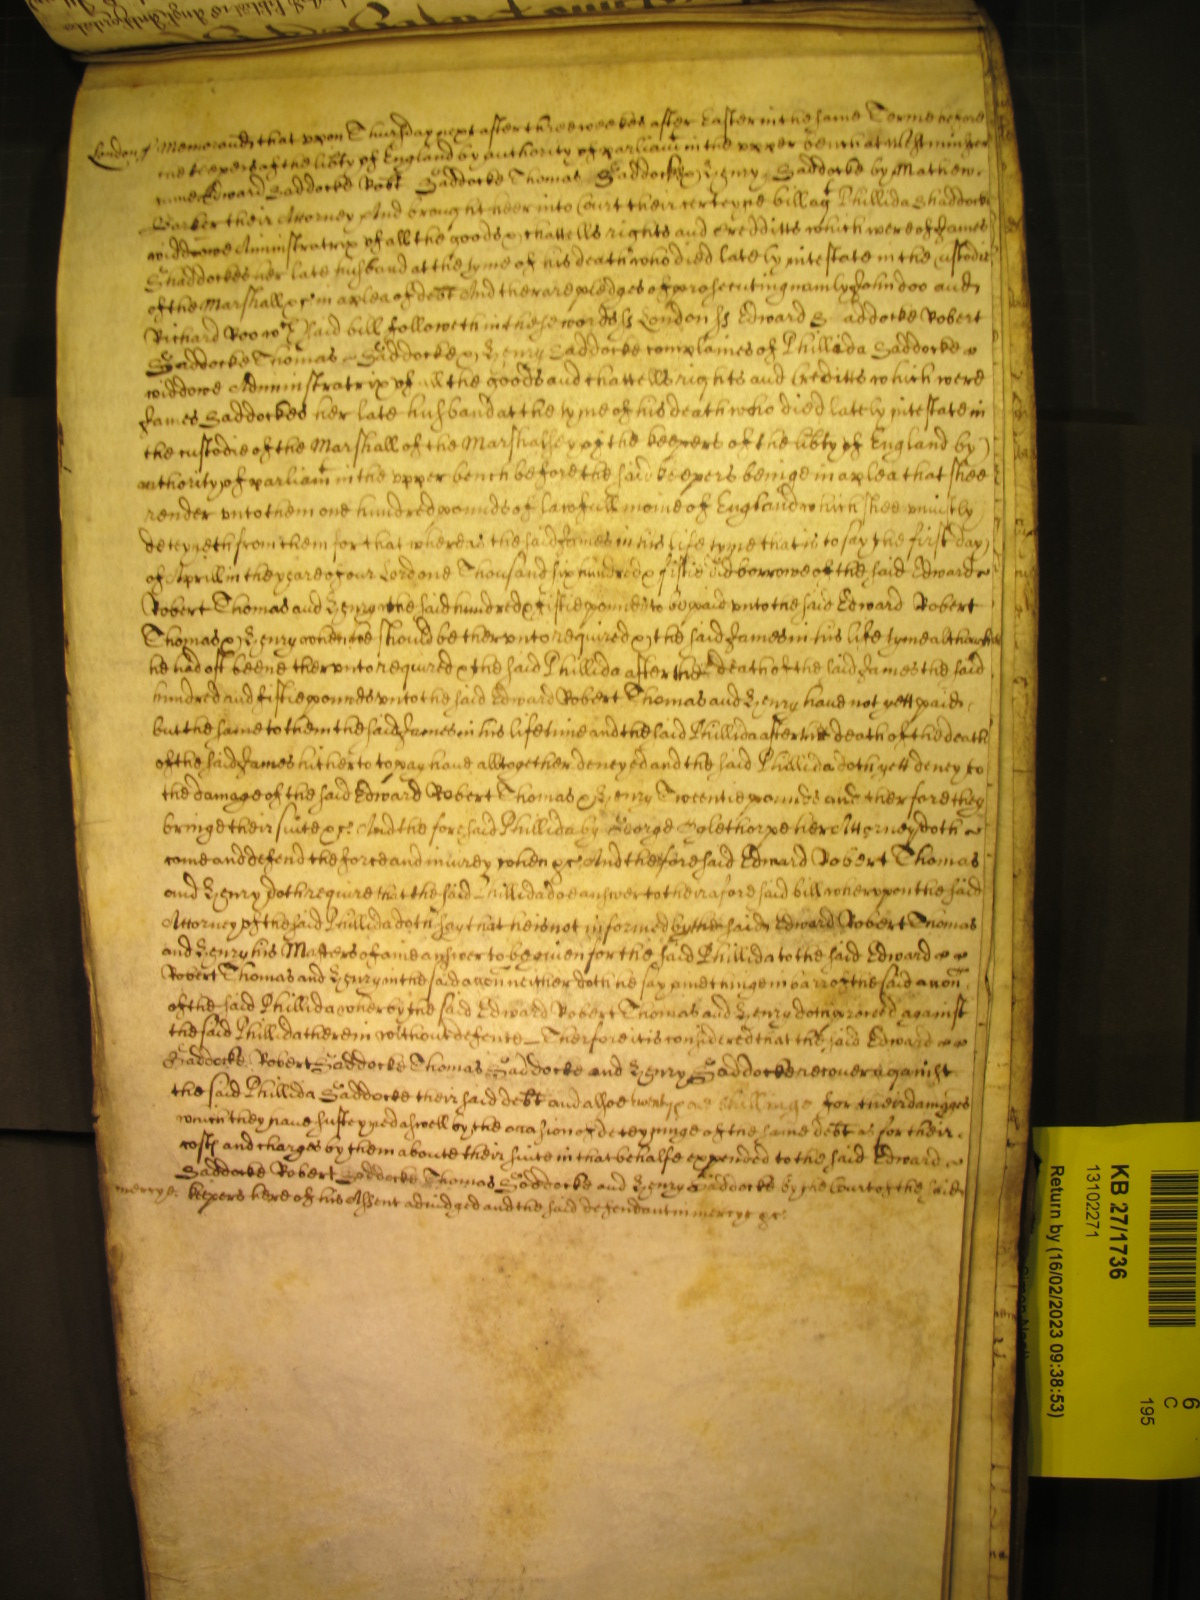 London ss Memorand that upon Thursday next after three weekes after Easter in the same Terme before
the keepers of the libty of England by authority of parliamt in the upper bench at Westminster
came Edward Saddocke Robt Saddocke Thomas Saddocke & Henry Saddocke by Mathew
Barker their Attorney And brought heer into Court their certeyne bill agt Phillida Shaddocke
widdowe Administratrix of all the goods & chattells rights and Credditts which were of James
Shaddockes her late husband at the tyme of his death who died lately intestate in the custodie
of the Marshall &c in a plea of debt And ther are pledges of prosecuting namly John doo and
Richard Roo wch said bill followeth in these words ss London ss Edward Saddocke Robert
Saddocke Thomas Saddocke & Henry Saddocke complaines of Phillida Saddocke
widdowe Administratrix of all the goods and chattells rights and Creditts which were
James Saddockes her late husband at the tyme of his death who died lately intestate in
the custodie of the Marshall of the Marshalsey of the keepers of the libty of England by
authority of parliamt in the upper bench before the said keepers beinge in a plea that shee
render unto them one hundred pounds of lawfull monie of England which shee uniustly
deteyneth from them for that whereas the said James in his life tyme that is to say the first day
of Aprill in the yeare of our Lord one Thousand six hundred & fiftie did borrowe of the said Edward
Robert Thomas and Henry the said hundred & fiftie pounds to be paid unto the said Edward Robert
Thomas & Henry when hee should be therunto required & the said James in his life tyme although
he had oft beene therunto required & the said Phillida after the death of the said James the said
hundred and fiftie pounds unto the said Edward Robert Thomas and Henry have not yett paid
but the same to them the said James in his life time and the said Phillida after the death of the death
of the said James hitherto to pay have alltogether denyed and the said Phillida doth yett deney to
the damage of the said Edward Robert Thomas & Henry Twentie pounds and therfore they
bringe their suite &c. And the foresaid Phillida by George Oglethorpe her Attorney doth
come and defend the force and iniurey when &c And the foresaid Edward Robert Thomas
and Henry doth require that the said Phillida doe answer to their aforesaid bill wherupon the said
Attorney of the said Phillida doth say that he is not informed by the said Edward Robert Thomas
and Henry his Masters of anie answer to be given for the said Phillida to the said Edward
Robert Thomas and Henry in the said accon neither doth he say anie thinge in barr of the said accon
of the said Phillida wherby the said Edward Robert Thomas and Henry doth proceed against
the said Phillida therein without defence Therfore it is considered that the said Edward
Saddocke Robert Saddocke Thomas Saddocke and Henry Saddocke recover against
the said Phillida Saddocke their said debt and allsoe twenty one shillings for their damages
which they have susteyned aswell by the occasion of deteyninge of the same debt as for their
costs and charges by them aboute their suite in that behalfe expended to the said Edward
Saddocke Robert Saddocke Thomas Saddocke and Henry Saddocke by the Court of the said
mercye. keepers here of his Assent adiudged and the said defendant in mercye &c.
KB 27/1736
13102271
Return by (16/02/2023 09:38:53)
6
C
195